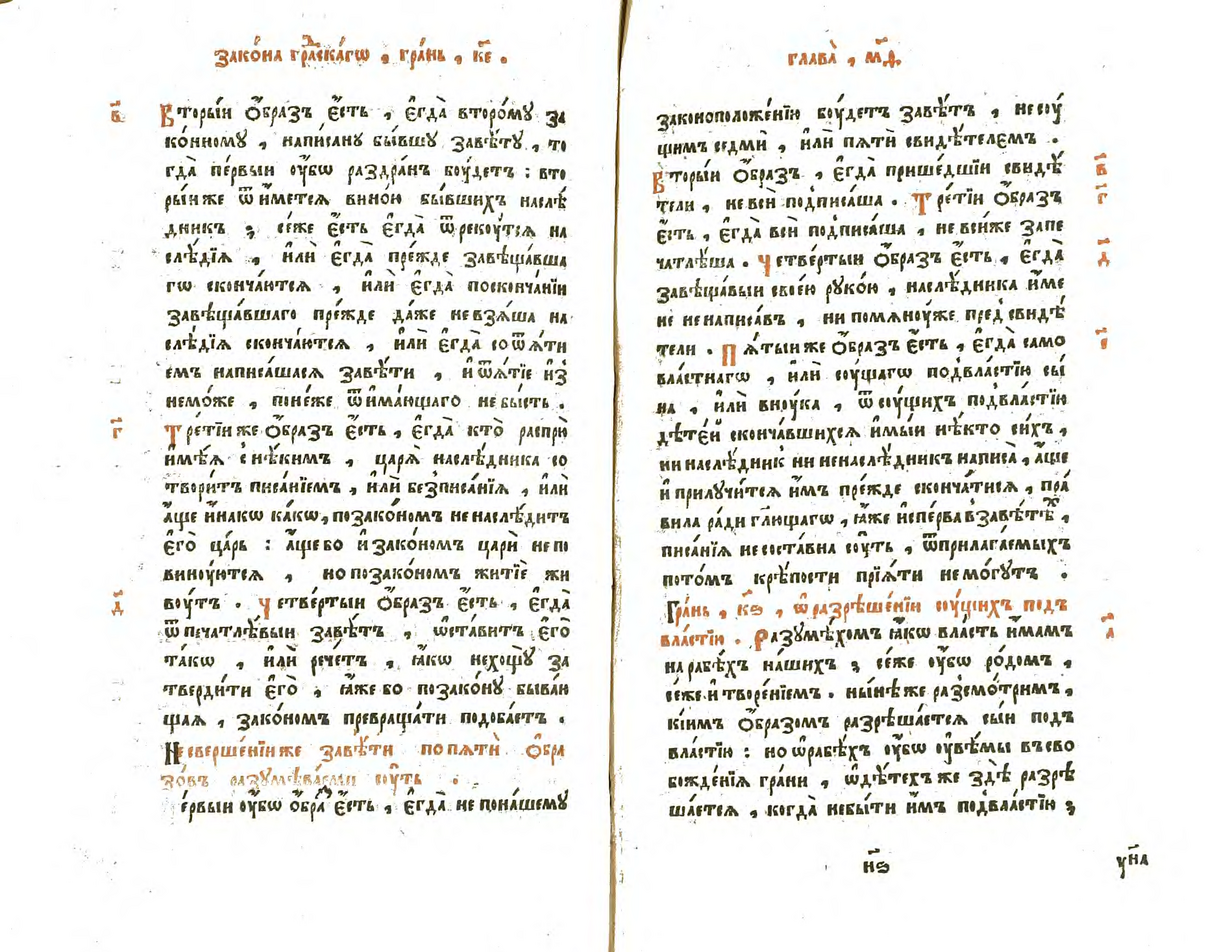 зако́на гра́скагѡ , гра́нь , к҃е .
в҃
Вторы́и ѻ҆́бразъ є҆́сть , є҆гда̀ второ́мꙋ за
ко́нномꙋ , напи́санꙋ бы́вшꙋ завѣ́тꙋ , то
гда̀ пе́рвыи ᲂу҆́бѡ раздра́нъ бꙋ́детъ : вто
ры́и же ѿи́метсѧ вино́ю бы́вшихъ наслѣ́
дникъ ; се́же є҆́сть є҆гда̀ ѿреко́утсѧ на
слѣ́дїѧ , и҆лѝ є҆гда̀ пре́жде завѣща́вша
гѡ сконча́ютсѧ , и҆лѝ є҆гда̀ посконча́нїи
завѣща́вшаго пре́жде да́же невзѧ́ша на
слѣ́дїѧ сконча́ютсѧ , и҆лѝ є҆гда̀ соѿѧ́ти
емъ написа́шасѧ завѣ́ти , и҆ ѿѧ́тїе и҆з
немо́же , поне́же ѿима́ющаго не бы́сть .
г҃
Тре́тїи же ѻ҆́бразъ є҆́сть , є҆гда̀ кто̀ распрю̀
и҆мѣ́ѧ с нѣ́кимъ , царѧ̀ наслѣ́дника со
твори́тъ писа́нїемъ , и҆лѝ безписа́нїѧ , и҆лѝ
а҆́ще и҆на́кѡ ка́кѡ , позако́номъ ненаслѣ́дитъ
є҆го̀ ца́рь : а҆́ще бо и҆ зако́номъ царѝ непо
винꙋ́ютсѧ , но позако́номъ житїѐ жи
вꙋ́тъ . Четве́ртыи ѻ҆́бразъ є҆́сть , є҆гда̀
д҃
ѿпечатлѣ́выи завѣ́тъ , ѡ҆ста́витъ є҆го̀
та́кѡ , и҆лѝ рече́тъ , ꙗ҆́кѡ нехощꙋ̀ за
тверди́ти є҆го̀ , ꙗ҆́же бо позако́нꙋ быва́ю
щаѧ , зако́номъ превраща́ти подоба́етъ .
Несверше́нїи же завѣ́ти по пѧтѝ ѻ҆́бра
зо́въ разꙋмѣва́еми сꙋ́ть .
е́рвыи ᲂу҆́бѡ ѻ҆́бра є҆́сть , є҆гда̀ не пона́шемꙋ
глава̀ , м҃д
законоположе́нїю бꙋ́детъ завѣ́тъ , несꙋ́
щимъ седмѝ , и҆лѝ пѧтѝ свидѣ́телемъ .
в҃
Вторы́и ѻ҆́бразъ , є҆гда̀ прише́дшїи свидѣ́
г҃
тели , невсѝ подписа́ша . Тре́тїи ѻ҆́бразъ
є҆́сть , є҆гда̀ всѝ подписа́ша , не вси́же запе
д҃
чатлѣ́ша . Четве́ртыи ѻ҆́бразъ є҆́сть , є҆гда̀
завѣща́выи свое́ю рꙋко́ю , наслѣ́дника и҆́ме
не ненаписа́въ , ни помѧнꙋ́же пред свидѣ́
е҃
тели . Пѧ́тыи же ѻ҆́бразъ є҆́сть , є҆гда̀ само
вла́стнагѡ , и҆лѝ сꙋ́щагѡ подвла́стїю сы́
на , и҆лѝ внꙋ́ка , ѿ сꙋ́щихъ подвла́стїю
дѣте́и сконча́вшихсѧ и҆мы́и нѣ́кто си́хъ ,
ни наслѣ́дник ни ненаслѣ́дникъ написа̀ , а҆́ще
и҆ прилꙋчи́тсѧ и҆̀мъ пре́жде сконча́тисѧ , пра́
вила ра́ди глю́щагѡ , ꙗ҆́же и҆спе́рва в завѣ́тѣх ,
писа́нїѧ несоста́вна сꙋ́ть , ѿ прилага́емыхъ
пото́мъ крѣ́пости прїѧ́ти немо́гꙋтъ .
Гра́нь , к҃ѕ , ѡ҆ разрѣше́нїи сꙋ́щихъ подъ
а҃
вла́стїю . Разꙋмѣ́хомъ ꙗ҆́кѡ вла́сть и҆́мамъ
на рабѣ́хъ на́шихъ ; се́же ᲂу҆́бѡ ро́домъ ,
се́же и҆ творе́нїемъ . ны́нѣ же разсмо́тримъ ,
кі́имъ ѻ҆́бразомъ разрѣша́етсѧ сы́и подъ
вла́стїю : но ѡ҆ рабѣ́хъ ᲂу҆́бѡ ᲂу҆вѣ́мы въ сво
божде́нїѧ гра́ни , ѡ҆ дѣ́техъ же здѣ̀ разрѣ
ша́етсѧ , когда̀ небы́ти и҆̀мъ подвла́стїю ;
н҃ѕ
ун҃а